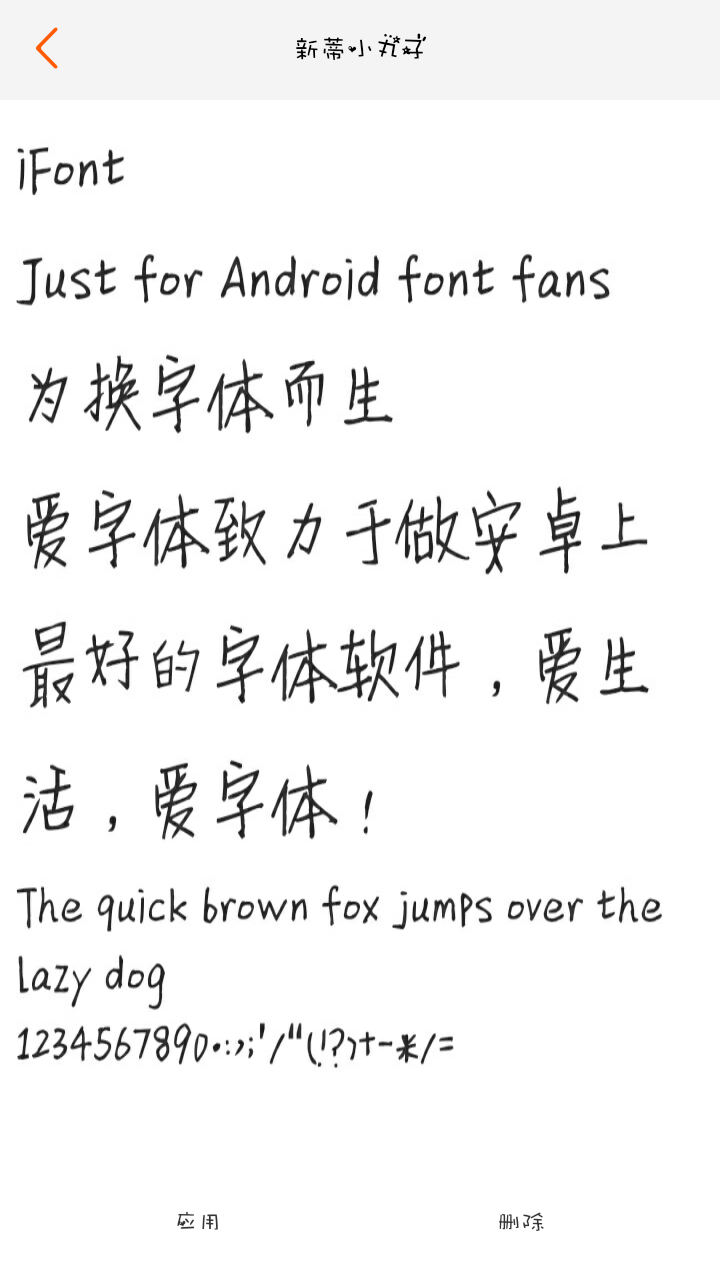 新蒂小丸子
iFont
Just for Android font fans
为换字体而生
爱字体致力于做安卓上
最好的字体软件，爱生
活，爱字体！
The quick brown fox jumps over the
lazy dog
1234567890.:,;'/"(!?)+-*/=
应用 删除